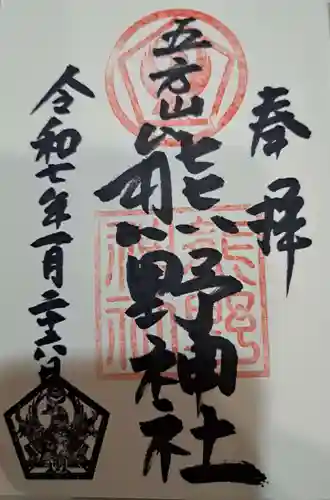 奉拝
五方山
熊野神社
令和七年一月二十八日
熊野
神社